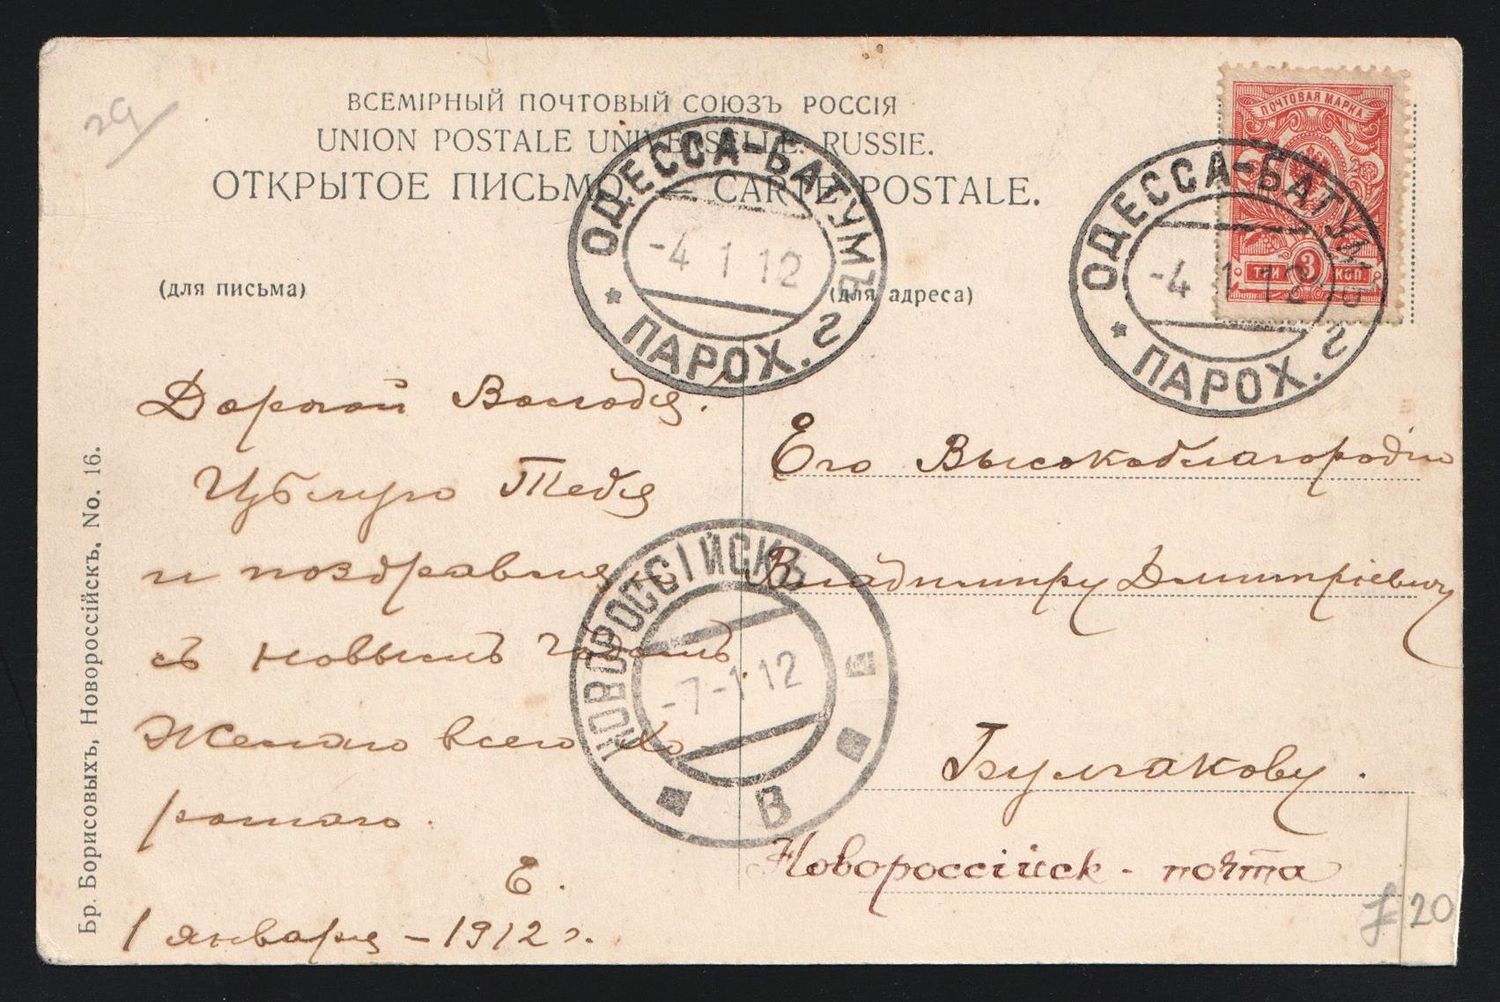 29
ВСЕМІРНЫЙ ПОЧТОВЫЙ СОЮЗЪ РОССІЯ
UNION POSTALE UNIVERSELLE. RUSSIE.
ОТКРЫТОЕ ПИСЬМО — CARTE POSTALE.
ПОЧТОВАЯ МАРКА
ТРИ 3 КОП.
ОДЕССА-БАТУМЪ
-4 1 12
* ПАРОХ. 2
ОДЕССА-БАТУМЪ
-4 1 12
* ПАРОХ. 2
(для письма)
(для адреса)
Дорогой Володя.
Цѣлую Тебя
и поздравляю
съ новымъ годомъ
Желаю всего хо
рошаго.
Е.
1 января – 1912 г.
НОВОРОССІЙСКЪ
-7-1 12
В
Его Высокоблагородію
Владимиру Дмитріевичу
Булгакову.
Новороссійск - почта
£20
Бр. Борисовыхъ, Новороссійскъ, No. 16.